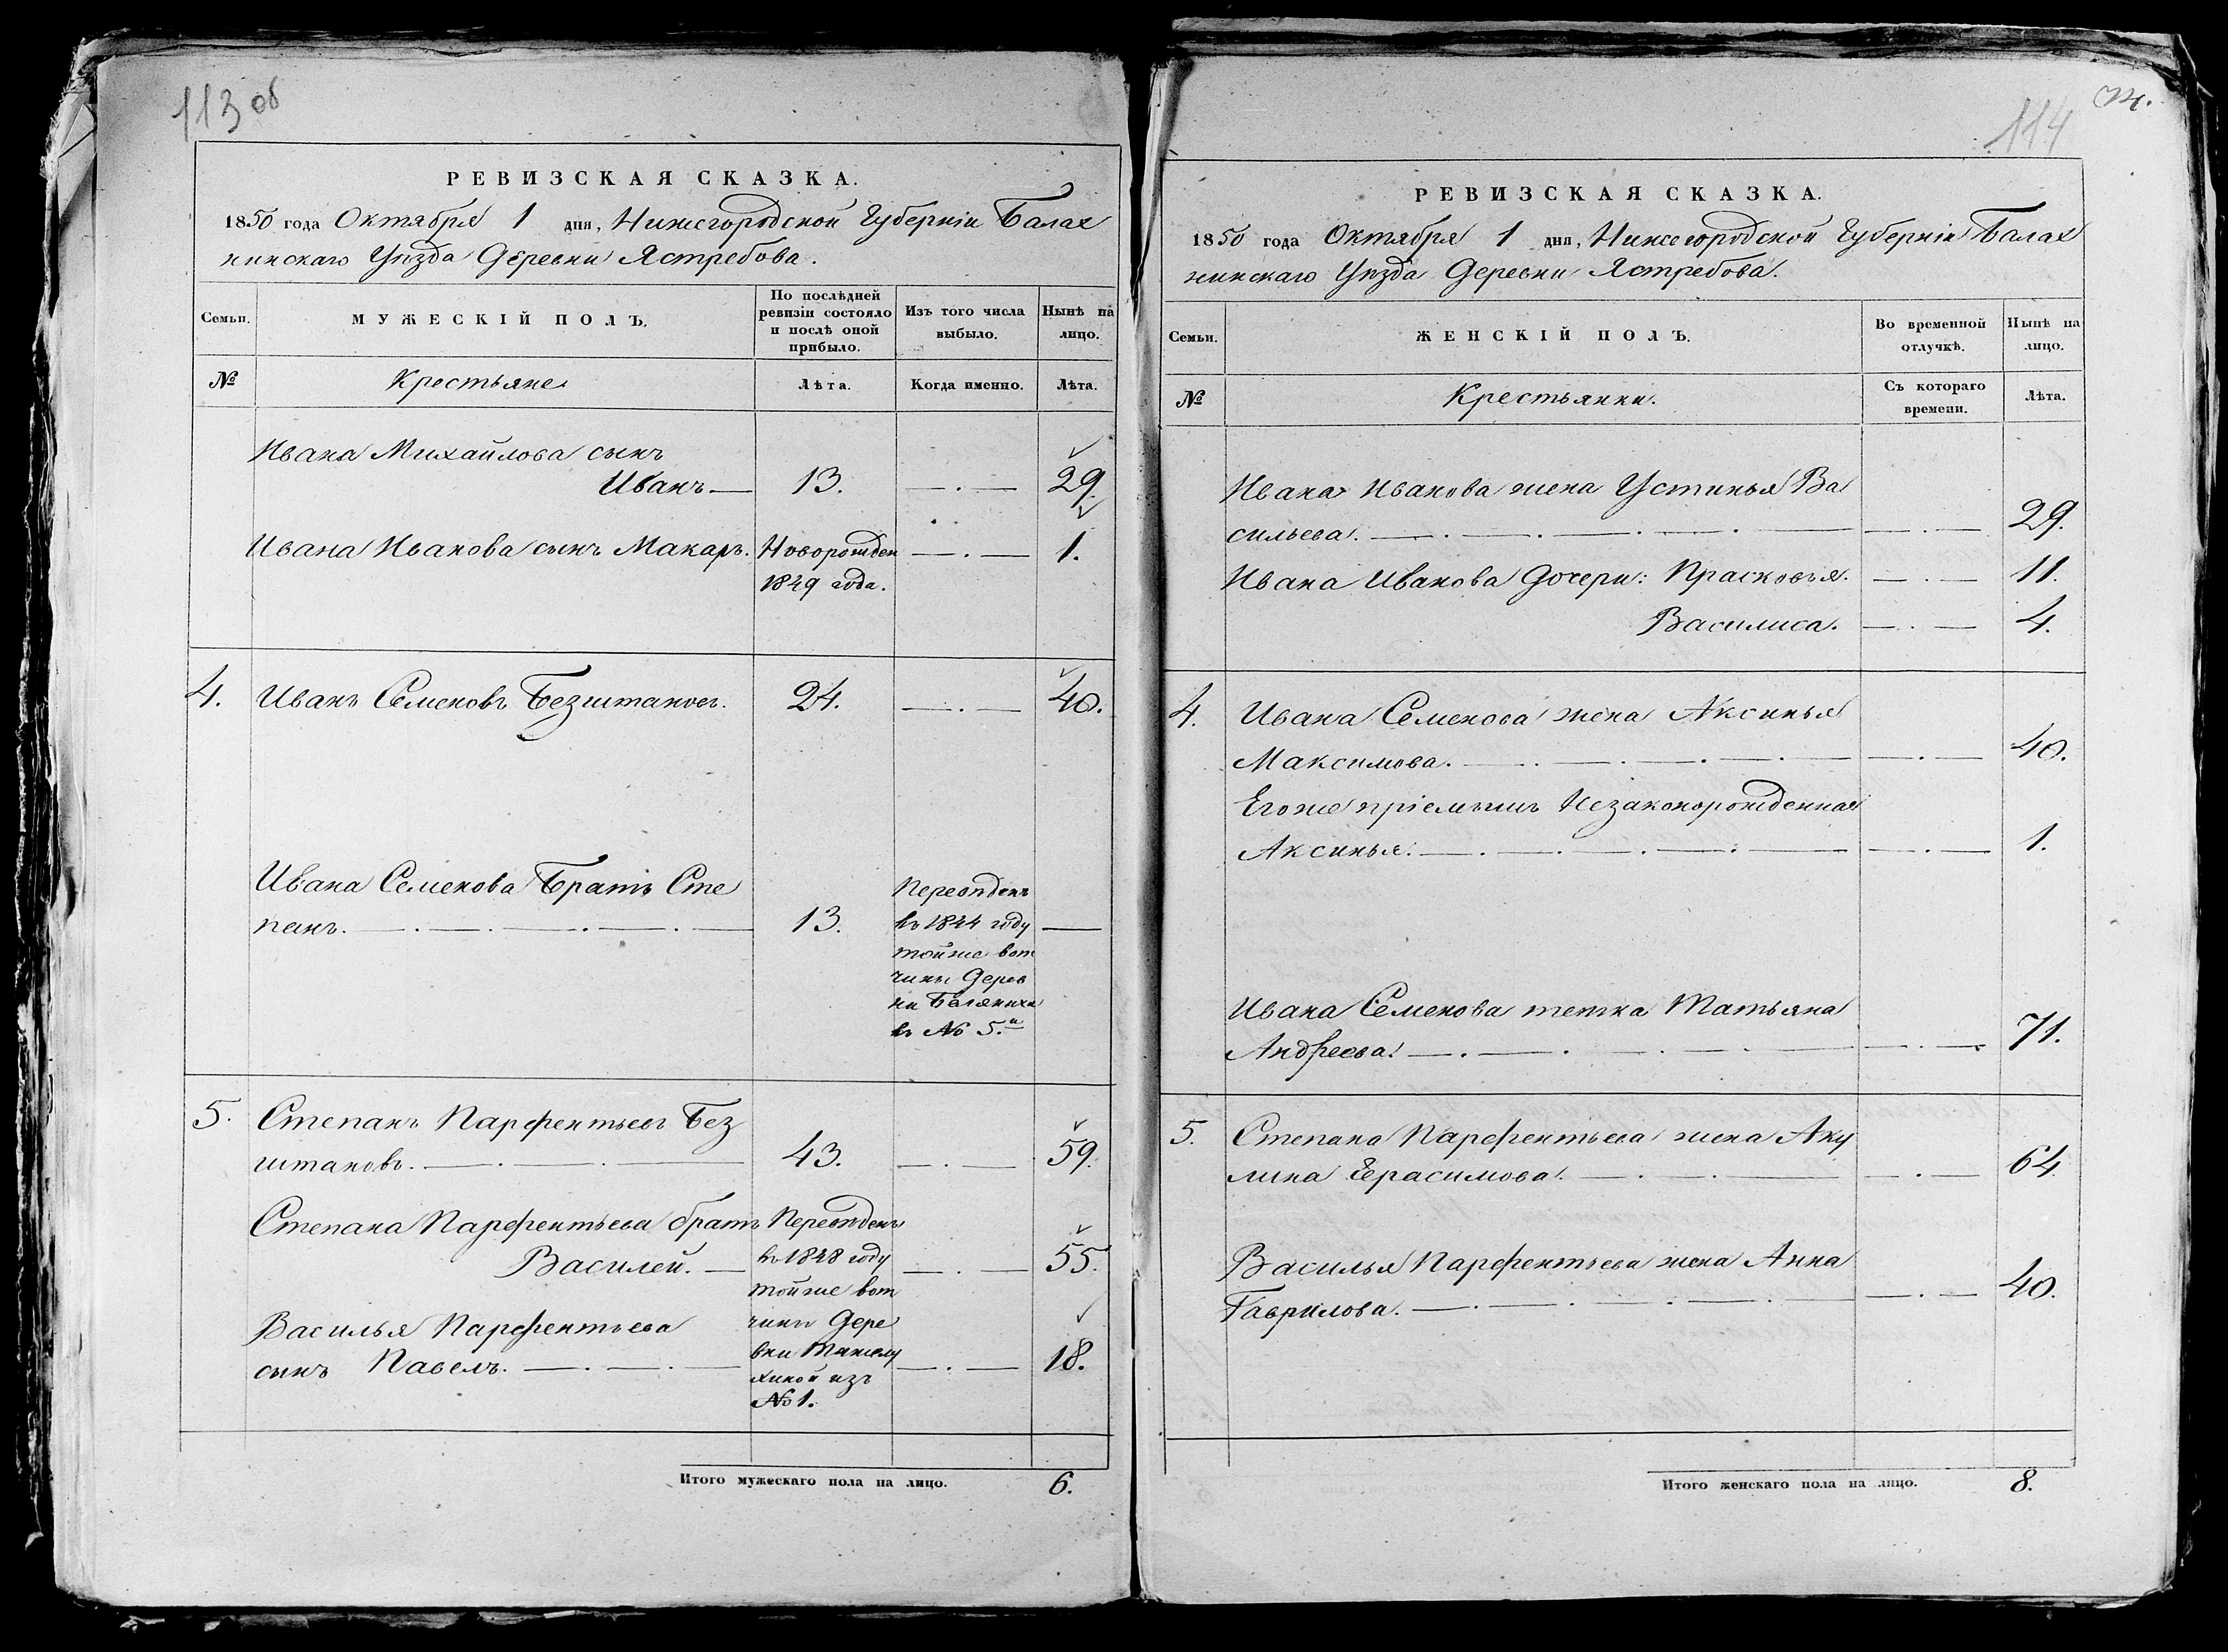 113 об
РЕВИЗСКАЯ СКАЗКА.
1850 года Октября 1 дня, Нижегородской Губерніи Балах
нинскаго Уѣзда Деревни Ястребова.
Семьи.
МУЖЕСКІЙ ПОЛЪ.
По послѣдней
ревизіи состояло
и послѣ оной
прибыло.
Изъ того числа
выбыло.
Нынѣ на
лицо.
№
Крестьяне
Лѣта.
Когда именно.
Лѣта.
Ивана Михайлова сынъ
Иванъ — 13. — . — 29.
Ивана Иванова сынъ Макаръ. Новорожден — . — 1.
1849 года.
4. Иванъ Семеновъ Безштановъ. 24. — . — 40.
Ивана Семенова Братъ Сте
панъ. — . — . — . — . — 13. —
Переведенъ
въ 1844 году
тойже вот
чины Дерев
ни
въ № 5.й
5. Степанъ Парфентьевъ Без
штановъ. — . — . — 43. — . — 59.
Степана Парфентьева братъ
Василей. — — . — 55.
Василья Парфентьева
сынъ Павелъ. — . — . — — . — 18.
Переведенъ
въ 1848 году
тойже вот
чины Дере
вни
хиной изъ
№ 1.
Итого мужескаго пола на лицо. 6.
114
РЕВИЗСКАЯ СКАЗКА.
1850 года Октября 1 дня, Нижегородской Губерніи Балах
нинскаго Уѣзда Деревни Ястребова.
Семьи.
ЖЕНСКІЙ ПОЛЪ.
Во временной
отлучкѣ.
Нынѣ на
лицо.
№
Крестьянки.
Съ котораго
времени.
Лѣта.
Ивана Иванова жена Устинья Ва
сильева. — . — . — . — . — — . — 29.
Ивана Иванова Дочери: Прасковья. — . — 11.
Василиса. — . — 4.
4. Ивана Семенова жена Аксинья
Максимова. — . — . — . — . — — . — 40.
Егоже пріемышъ Незаконорожденная
Аксинья. — . — . — . — . — — . — 1.
Ивана Семенова тетка Татьяна
Андреева. — . — . — . — . — — . — 71.
5. Степана Парфентьева жена Аку
лина Герасимова. — . — . — — . — 64.
Василья Парфентьева жена Анна
Гаврилова. — . — . — . — . — — . — 40.
Итого женскаго пола на лицо. 8.